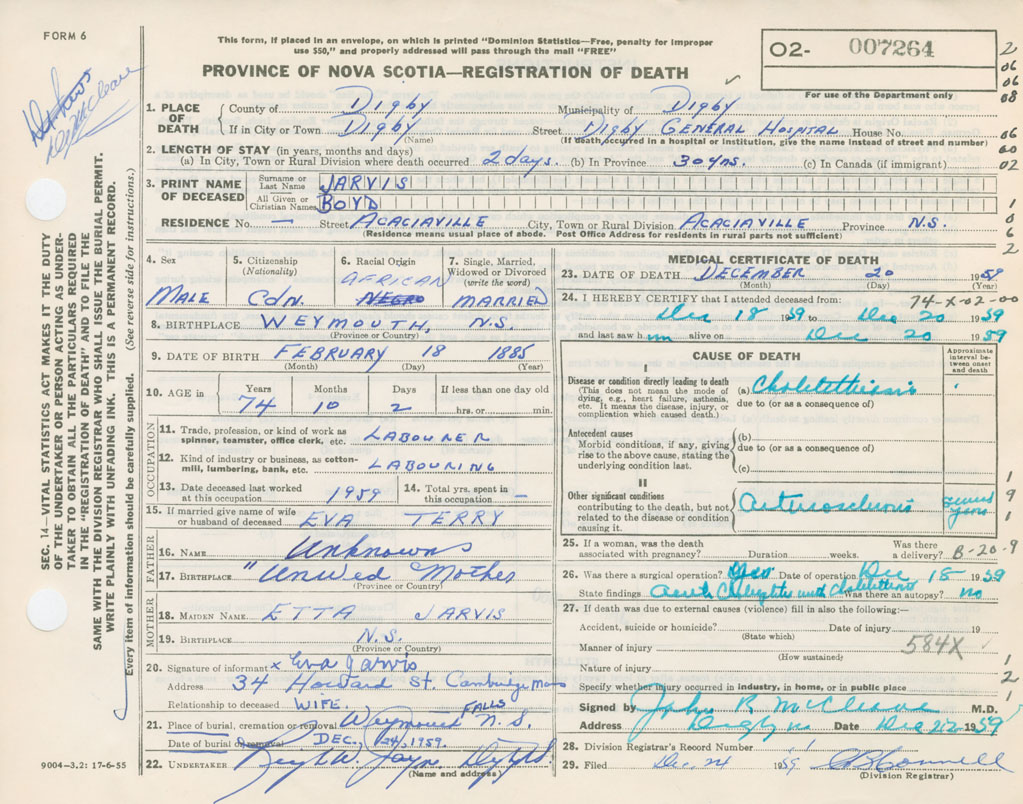 FORM 6
This form, if placed in an envelope, on which is printed "Dominion Statistics—Free, penalty for improper
use $50," and properly addressed will pass through the mail "FREE"
O2- 007264
For use of the Department only
PROVINCE OF NOVA SCOTIA—REGISTRATION OF DEATH
2
06
06
08
06
60
02
1
0
6
2
SEC. 14—VITAL STATISTICS ACT MAKES IT THE DUTY
OF THE UNDERTAKER OR PERSON ACTING AS UNDER-
TAKER TO OBTAIN ALL THE PARTICULARS REQUIRED
IN THE "REGISTRATION OF DEATH" AND TO FILE THE
SAME WITH THE DIVISION REGISTRAR WHO SHALL ISSUE THE BURIAL PERMIT.
WRITE PLAINLY WITH UNFADING INK. THIS IS A PERMANENT RECORD.
Every item of information should be carefully supplied. (See reverse side for instructions.)
1. PLACE OF DEATH
County of Digby Municipality of Digby
If in City or Town Digby Street Digby General Hospital House No.
(Name) (If death occurred in a hospital or institution, give the name instead of street and number)
2. LENGTH OF STAY (in years, months and days)
(a) In City, Town or Rural Division where death occurred 2 days. (b) In Province 30 yrs. (c) In Canada (if immigrant)
3. PRINT NAME OF DECEASED
Surname or Last Name JARVIS
All Given or Christian Names BOYD
RESIDENCE No. — Street ACACIAVILLE City, Town or Rural Division ACACIAVILLE Province N.S.
(Residence means usual place of abode. Post Office Address for residents in rural parts not sufficient)
4. Sex
MALE
5. Citizenship
(Nationality)
CDN.
6. Racial Origin
AFRICAN
NEGRO
7. Single, Married,
Widowed or Divorced
(write the word)
MARRIED
8. BIRTHPLACE WEYMOUTH, N.S.
(Province or Country)
9. DATE OF BIRTH FEBRUARY 18 1885
(Month) (Day) (Year)
10. AGE in
Years Months Days If less than one day old
74 10 2 hrs. or min.
OCCUPATION
11. Trade, profession, or kind of work as
spinner, teamster, office clerk, etc. LABOURER
12. Kind of industry or business, as cotton-
mill, lumbering, bank, etc. LABOURING
13. Date deceased last worked
at this occupation 1959
14. Total yrs. spent in
this occupation —
15. If married give name of wife
or husband of deceased EVA TERRY
FATHER
16. NAME Unknown
17. BIRTHPLACE "Unwed Mother
(Province or Country)
MOTHER
18. MAIDEN NAME ETTA JARVIS
19. BIRTHPLACE N.S.
(Province or Country)
20. Signature of informant x Eva Jarvis
Address 34 Howard St. Cambridge Mass
Relationship to deceased WIFE.
21. Place of burial, cremation or removal Weymouth FALLS N.S.
Date of burial or removal DEC. 24, 1959.
22. UNDERTAKER
(Name and address)
9004-3.2: 17-6-55
MEDICAL CERTIFICATE OF DEATH
23. DATE OF DEATH DECEMBER 20 1959
(Month) (Day) (Year)
24. I HEREBY CERTIFY that I attended deceased from: 74-X-02-00
Dec 18 1959 to Dec 20 1959
and last saw him alive on Dec 20 1959
CAUSE OF DEATH
Approximate
interval be-
tween onset
and death
I
Disease or condition directly leading to death
(This does not mean the mode of
dying, e.g., heart failure, asthenia,
etc. It means the disease, injury, or
complication which caused death.)
(a) Cholelithiasis
due to (or as a consequence of)
Antecedent causes
Morbid conditions, if any, giving
rise to the above cause, stating the
underlying condition last.
(b)
due to (or as a consequence of)
(c)
II
Other significant conditions
contributing to the death, but not
related to the disease or condition
causing it.
Arteriosclerosis
years
1
9
1
25. If a woman, was the death
associated with pregnancy? Duration weeks. Was there
a delivery? B-20-9
26. Was there a surgical operation? Yes Date of operation Dec 18 1959
State findings Acute Cholecystitis with Cholelithiasis Was there an autopsy? no
27. If death was due to external causes (violence) fill in also the following:—
Accident, suicide or homicide? Date of injury 19
(State which)
Manner of injury 584X
(How sustained)
Nature of injury
Specify whether injury occurred in industry, in home, or in public place
1
2
1
Signed by John R McCleave M.D.
Address Digby NS Date Dec 22 1959
28. Division Registrar's Record Number
29. Filed Dec. 24 1959
(Division Registrar)